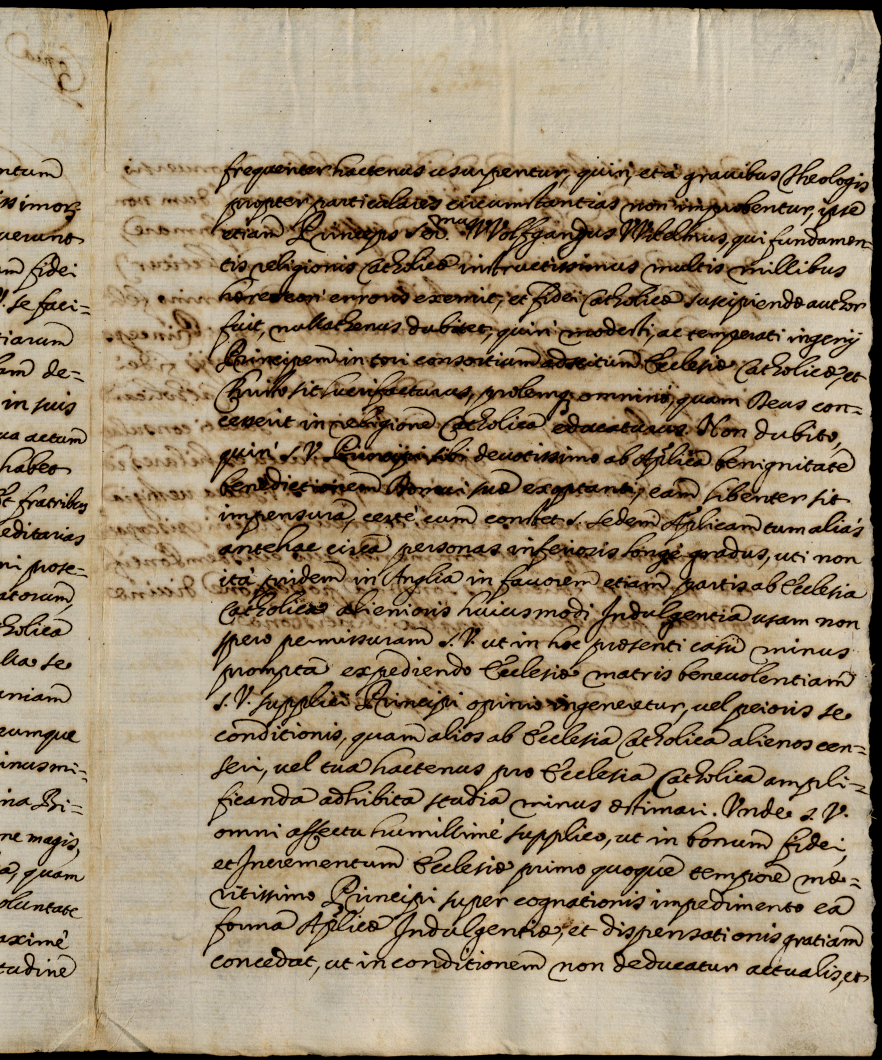 frequenter hactenus usurpentur, quin, et à gravibus Theologis
propter particulares circumstantias non improbentur, ipse
etiam Princeps Wolfgangus Wilelmus, qui fundamen=
tis religionis Catholicæ instructissimus multis millibus
erroris exemit, et fidei Catholicæ suscipiendæ author
fuit, nullathenus dubitet, quin modesti, ac temperati ingenij
Principem in tori consortium adscitum Ecclesiæ Catholicæ, et
Christo sit prolemq3 omninò, quam Deus con=
cesserit in religione Catholica educaturus. Non dubito,
quin S. V. Principi sibi devotissimo ab Aplica benignitate
benedictionem Domui suæ exoptanti, eam libenter sit
impensura, certè cum constet S. Sedem Aplicam tum aliàs
antehac circa personas inferioris longè gradus, uti non
ità pridem in Anglia in favorem etiam partis ab Ecclesia
Catholica alienioris huiusmodi Indulgentia usam non
spero permissuram S. V. ut in hoc præsenti casu minus
promptã expediendo Ecclesiæ matris benevolentiam
S. V. supplici Principi opinio ingeneretur, vel peioris se
conditionis, quam alios ab Ecclesia Catholica alienos cen=
seri, vel tua hactenus pro Ecclesia Catholica ampli=
ficanda adhibita studia minus æstimari. Unde S. V.
omni affectu humillimè supplico, ut in bonum fidei,
et Incrementum Ecclesiæ primo quoque tempore me=
ritissimo Principi super cognationis impedimento eã
forma Aplicæ Indulgentiæ, et dispensationis gratiam
concedat, ut in conditionem non deducatur actualis, et
ntum
issimor3
verunt
um fidei
V. se faci=
tiarum
am de=
in suis
ua actum
habet
et fratribus
editarias
ni prose=
atorum,
tholica
lia se
aniam
cumque
inus mi=
ina Bi=
ne magis,
a, quam
oluntate
aximè
tudinẽ
Copia